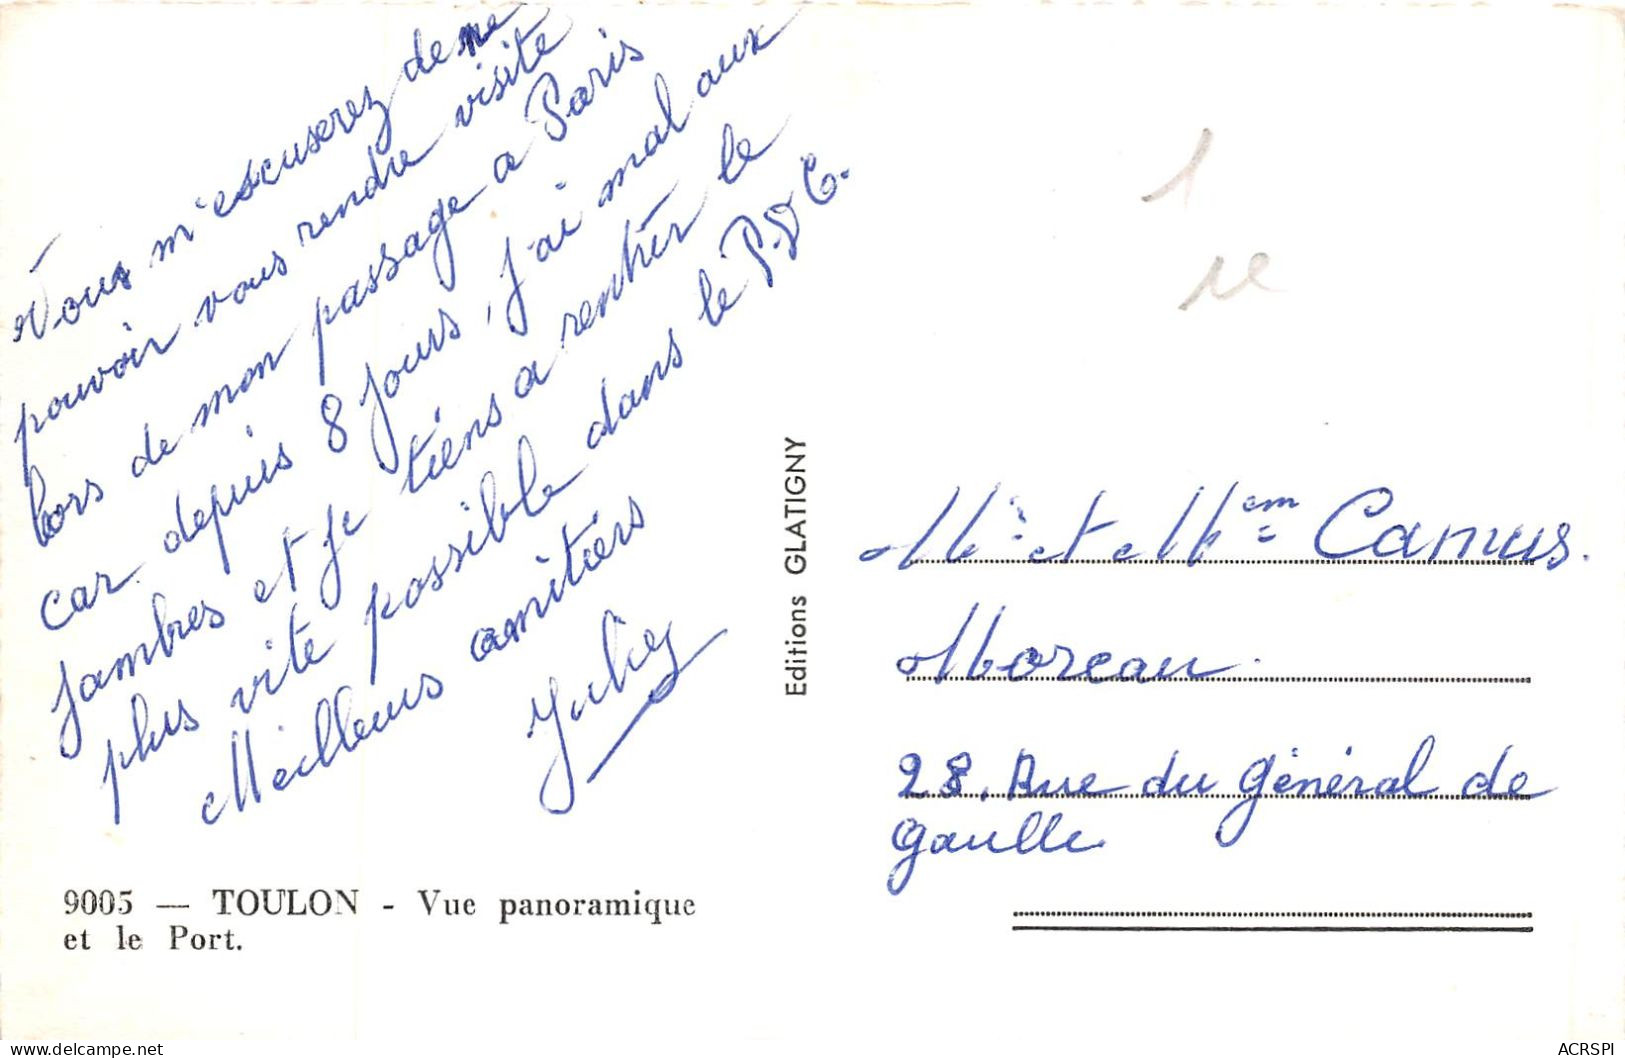 Vous m'escuserez de ne
pouvoir vous rendre visite
lors de mon passage a Paris
car depuis 8 jours, j'ai mal aux
jambres et je tiens a rentrér le
plus vite possible dans le P.D C.
Meilleurs amitiérs
Editions GLATIGNY
Mr et Mem Camus.
Moreau.
28. Rue du Général de
Gaulle
9005 — TOULON - Vue panoramique
et le Port.
delcampe.net
ACRSPI